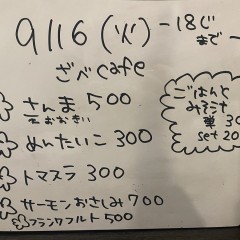 9/16(火) -18じまで-
ざべcafe
さんま 500
めんたいこ 300
トマスラ 300
サーモンおさしみ 700
フランクフルト 500
ごはんと
みそしる
単 30
set 20